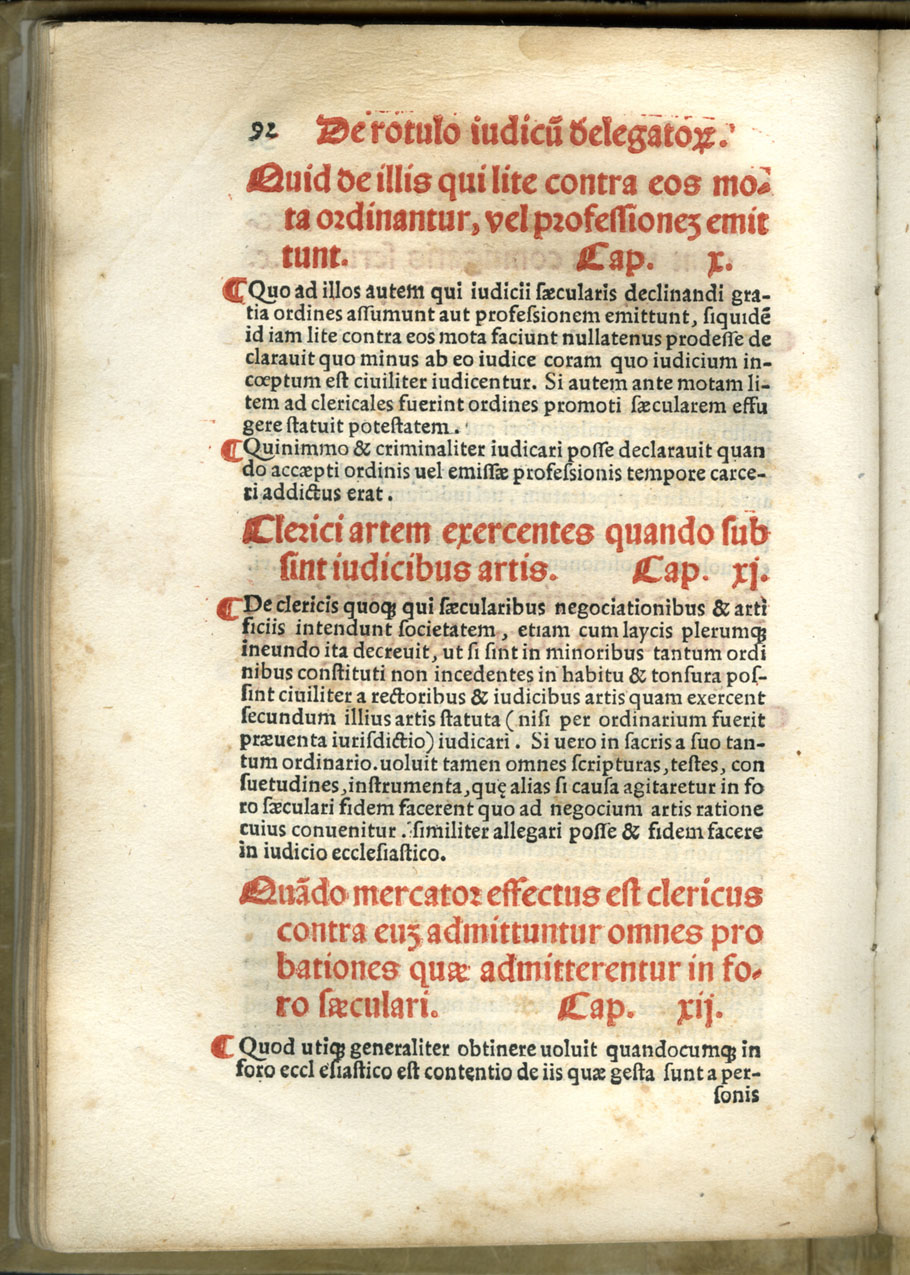 92 De rotulo iudicū delegatoꝝ.
Quid de illis qui lite contra eos mo⸗
ta ordinantur, vel professioneʒ emit
tunt. Cap. x.
¶ Quo ad illos autem qui iudicii sæcularis declinandi gra-
tia ordines assumunt aut professionem emittunt, siquidē
id iam lite contra eos mota faciunt nullatenus prodesse de
clarauit quo minus ab eo iudice coram quo iudicium in-
cœptum est ciuiliter iudicentur. Si autem ante motam li-
tem ad clericales fuerint ordines promoti sæcularem effu
gere statuit potestatem.
¶ Quinimmo & criminaliter iudicari posse declarauit quan
do accæpti ordinis uel emissæ professionis tempore carce-
ri addictus erat.
Clerici artem exercentes quando sub
sint iudicibus artis. Cap. xj.
¶ De clericis quoqꝫ qui sæcularibus negociationibus & arti
ficiis intendunt societatem, etiam cum laycis plerumqꝫ
ineundo ita decreuit, ut si sint in minoribus tantum ordi
nibus constituti non incedentes in habitu & tonsura pos-
sint ciuiliter a rectoribus & iudicibus artis quam exercent
secundum illius artis statuta (nisi per ordinarium fuerit
præuenta iurisdictio) iudicari. Si uero in sacris a suo tan-
tum ordinario.uoluit tamen omnes scripturas, testes, con
suetudines, instrumenta, quę alias si causa agitaretur in fo
ro sæculari fidem facerent quo ad negocium artis ratione
cuius conuenitur. similiter allegari posse & fidem facere
in iudicio ecclesiastico.
Quādo mercator effectus est clericus
contra euʒ admittuntur omnes pro
bationes quæ admitterentur in fo⸗
ro sæculari. Cap. xij.
¶ Quod utiqꝫ generaliter obtinere uoluit quandocumqꝫ in
foro eccl esiastico est contentio de iis quæ gesta sunt a per-
sonis